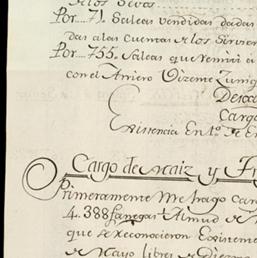 Por 71. Saleas vendidas dadas
das a las Cuentas de los Sirvien
Por 755. Saleas que Remiti a
con el Arriero Vizente Zuñig
Desca
Cargo
Existencia En 1º de E
Cargo de Maiz y Fr
Primeramente Me hago Car
4,388 fanegas 1 Almud de
que se Reconocieron Existente
de Mayo libres de Diezmo